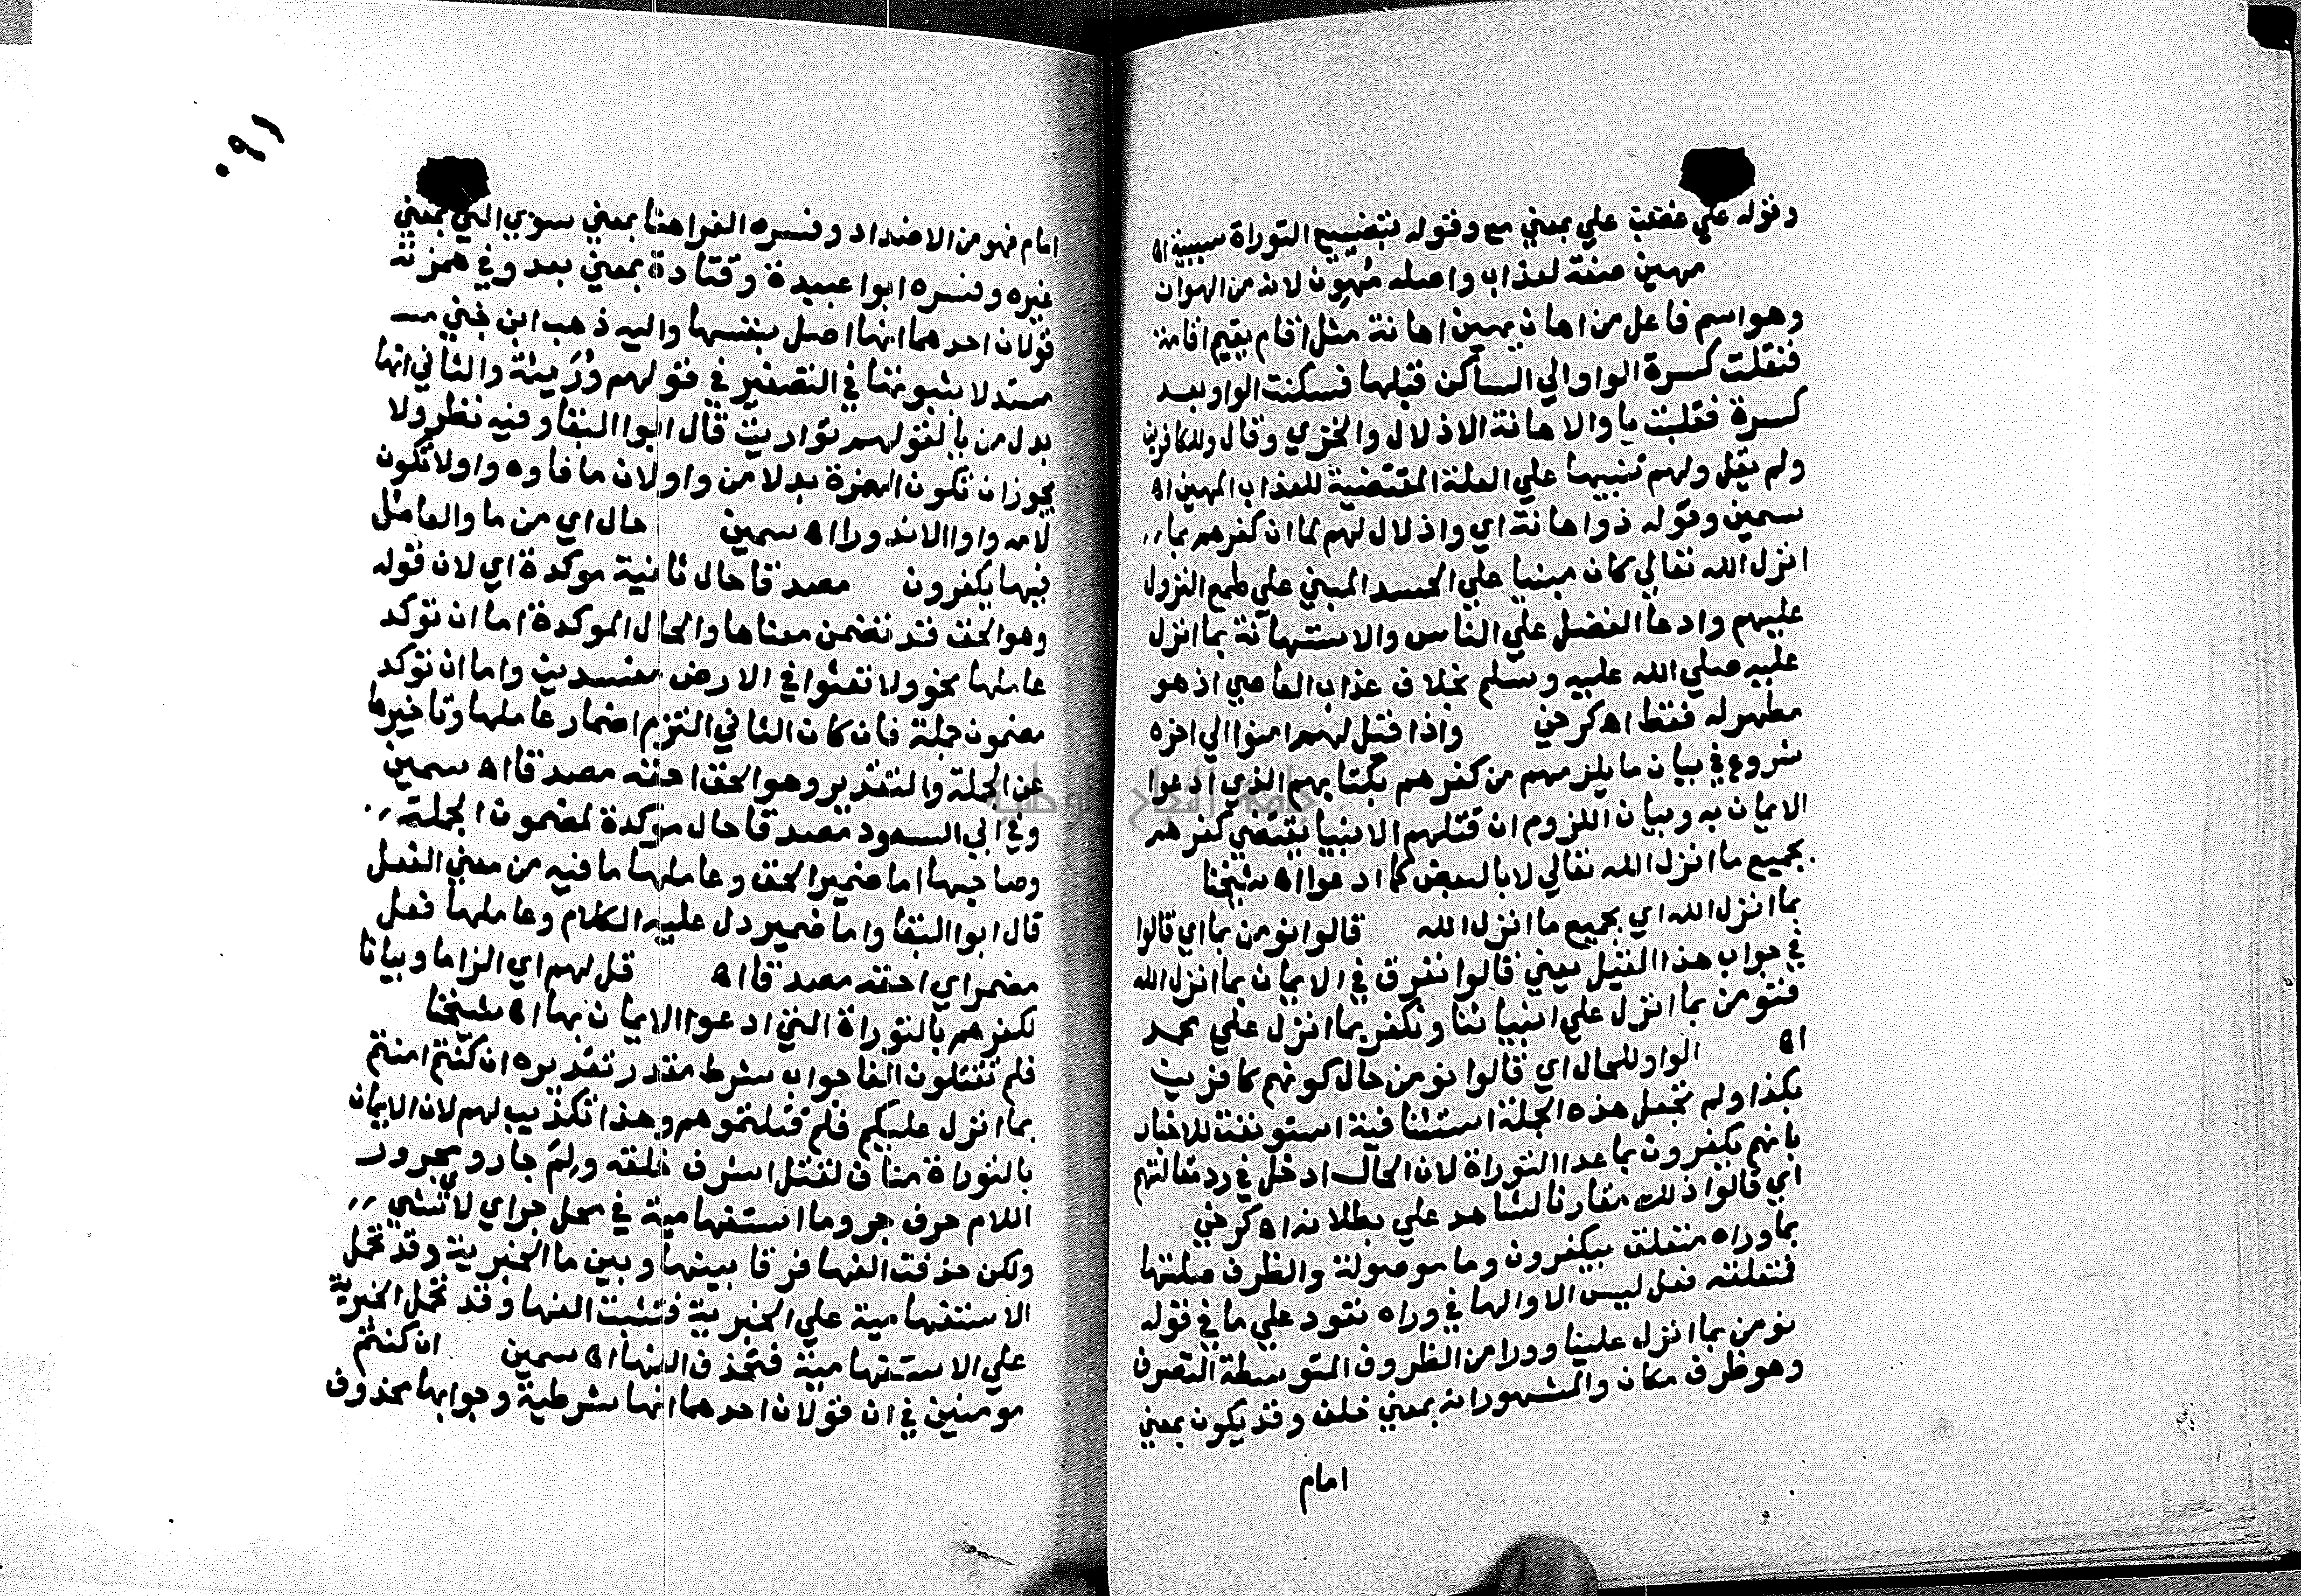 وقوله علي غضب علي بمعني مع وقوله بتضييع التوراة سببية اه
مهين صفة لعذاب واصله مُهوِن لانه من الهوان
وهو اسم فاعل من اهان يهين اهانة مثل اقام يقيم اقامة
فنقلت كسرة الواو الي الساكن قبلها فسكنت الواو بعد
كسرة فقلبت يا والاهانة الاذلال والخزي وقال وللكافرين
ولم يقل ولهم تنبيها علي العلة المقتضية للعذاب المهين اه
سمين وقوله ذو اهانة اي واذلال لهم لما ان كفرهم بما
انزل الله تعالي كان مبنيا علي الحسد المبني علي طمع النزول
عليهم وادعا الفضل علي الناس والاستهانة بما انزل
عليه صلي الله عليه وسلم بخلاف عذاب العاصي اذ هو
مطهر له فقط اه كرخي واذا قيل لهم امنوا الي اخره
شروع في بيان ما يلزمهم من كفرهم بكتابهم الذي ادعوا
الايمان به وبيان اللزوم ان قتلهم الانبيا يقتضي كفرهم
بجميع ما انزل الله تعالي لا بالبعض كما ادعوا اه شيخنا
بما انزل الله اي بجميع ما انزل الله قالوا نومن بما اي قالوا
في جواب هذا القيل يعني قالوا نفرق في الايمان بما انزل الله
فنومن بما انزل علي انبيائنا ونكفر بما انزل علي محمد
اه الواو للحال اي قالوا نومن حال كونهم كافرين
بكذا ولم تجعل هذه الجملة استئنافية استونفت للاخبار
بانهم يكفرون بما عدا التوراة لان الحال ادخل في رد مقالتهم
اي قالوا ذلك مقارنا لشاهد علي بطلانه اه كرخي
بما وراه متعلق بيكفرون وما موصولة والظرف صلتها
فمتعلقه فعل ليس الا والها في وراه تعود علي ما في قوله
نومن بما انزل علينا وورا من الظروف المتوسطة التصرف
وهو ظرف مكان والمشهور انه بمعني خلف وقد يكون بمعني
امام
٠٩١
امام فهو من الاضداد وفسره الفرا هنا بمعني سوي التي بمعني
غيره وفسره ابوا عبيدة وقتادة بمعني بعد وفي همزته
قولان احدهما انها اصل بنفسها واليه ذهب ابن جني
مستدلا بثبوتها في التصغير في قولهم وُرَيئة والثاني انها
بدل من يا لقولهم تواريت قال ابوا البقا وفيه نظر ولا
يجوز ان تكون الهمزة بدلا من واو لان ما فاوه واو لا تكون
لامه واوا الا ندورا اه سمين حال اي من ما والعامل
فيها يكفرون مصدقا حال ثانية موكدة اي لان قوله
وهو الحق قد تضمن معناها والحال الموكدة اما ان توكد
عاملها نحو ولا تعثوا في الارض مفسدين واما ان توكد
مضمون جملة فان كان الثاني التزم اضمار عاملها وتاخيرها
عن الجملة والتقدير وهو الحق احقه مصدقا اه سمين
وفي ابي السعود مصدقا حال موكدة لمضمون الجملة
وصاحبها اما ضمير الحق وعاملها ما فيه من معني الفعل
قال ابوا البقا واما ضمير دل عليه الكلام وعاملها فعل
مضمر اي احقه مصدقا اه قل لهم اي الزاما وبيانا
لكفرهم بالتوراة التي ادعوا الايمان بها اه شيخنا
فلم تقتلون الفا جواب شرط مقدر تقديره ان كنتم امنتم
بما انزل عليكم فلم قتلتموهم وهذا تكذيب لهم لان الايمان
بالتوراة مناف لقتل اشرف خلقه ولم جار ومجرور
اللام حرف جر وما استفهامية في محل جر اي لاي شي
ولكن حذفت الفها فرقا بينها وبين ما الخبرية وقد تحمل
الاستفهامية علي الخبرية فتثبت الفها وقد تحمل الخبرية
علي الاستفهامية فتحذف الفها اه سمين ان كنتم
مومنين في ان قولان احدهما انها شرطية وجوابها محذوف
جامعة النجاح الوطنية